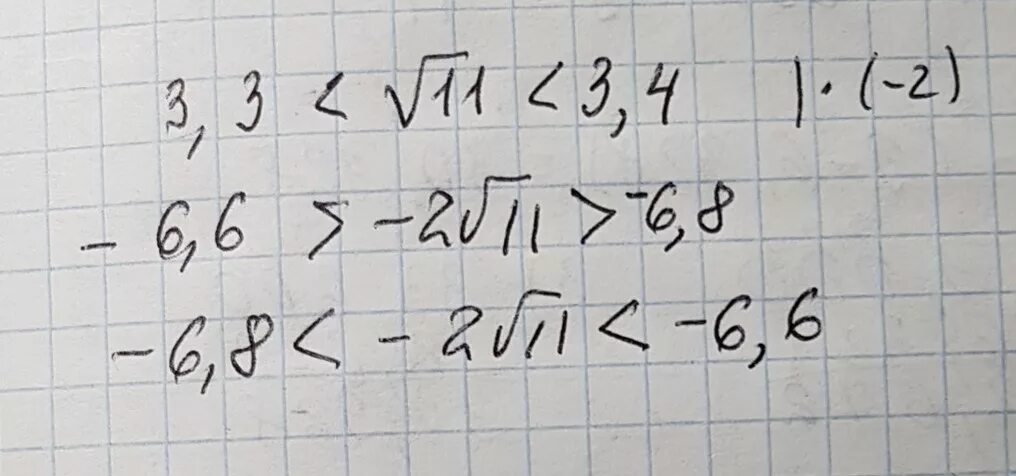 3,3 < √11 < 3,4 | · (-2)
- 6,6 > -2√11 > -6,8
-6,8 < -2√11 < -6,6